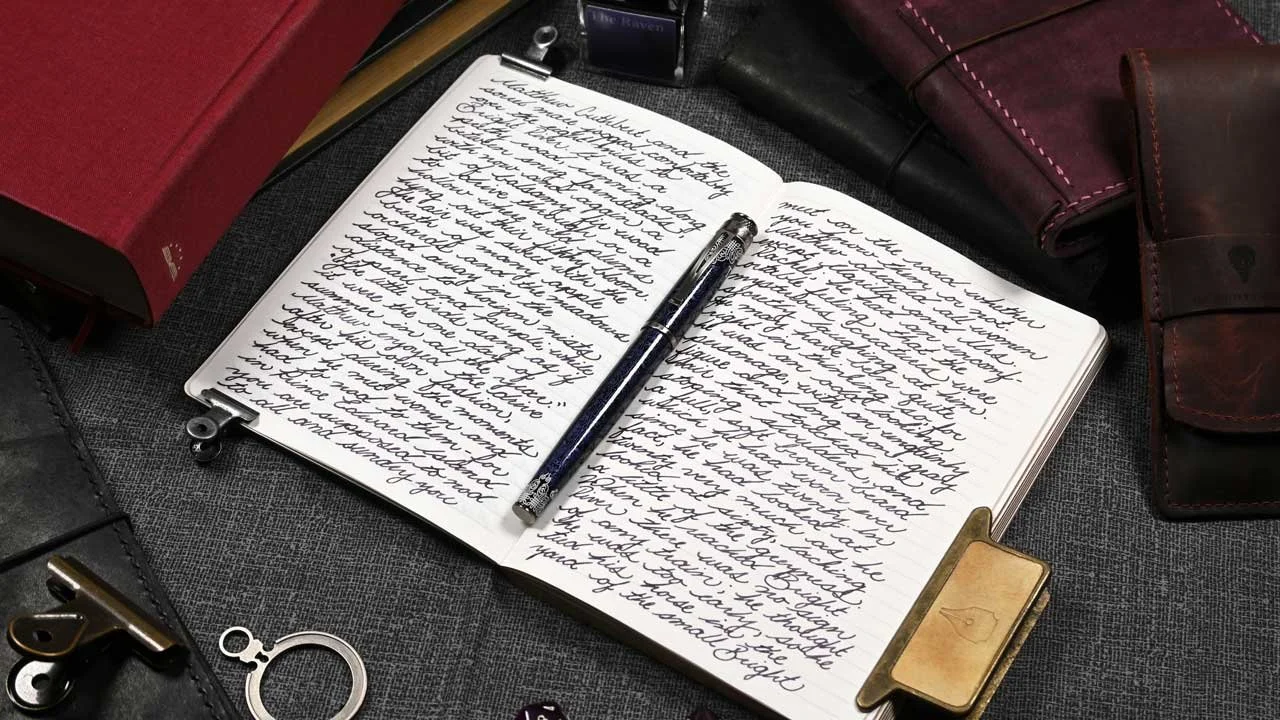 The Raven
Matthew Cuthbert and the
sorrel mare jogged comfortably
over the eight miles to
Bright River. It was a
pretty road, running along
between snug farmsteads,
with now and again a
bit of balsamy fir wood
to drive through or a
hollow where wild plums
hung out their filmy bloom.
The air was sweet with the
breath of many apple
orchards and the meadows
sloped away in the
distance to horizon mists
of pearl and purple; while
"The little birds sang as if
it were the one day of
summer in all the year."
Matthew enjoyed the drive
after his own fashion,
except during the moments
when he met women and
had to nod to them, for
in Prince Edward Island
you are supposed to nod
to all and sundry you
meet on the road whether
you know them or not.
Matthew dreaded all women
except Marilla and Mrs.
Rachel
uncomfortable feeling that the
mysterious creatures
secretly laughing at him.
He may have been quite
right in thinking so, for
he was an odd
personage, with an ungainly
figure and long iron-gray
hair that touched his
stooping shoulders, and
a full, soft brown beard
which he had worn ever
since he was twenty. In
fact, he had looked at
twenty
looked at sixty, lacking
a little of the grayness.
When he reached Bright
River there was no sign
of any train; he thought
he was too early, so he
tied his horse in the
yard of the small Bright